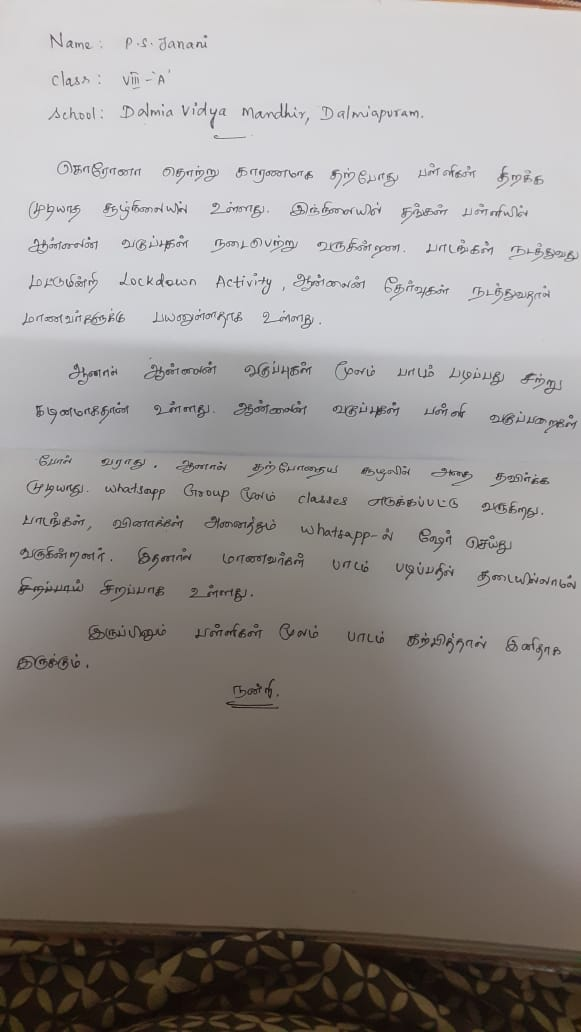 Name : P.S. Janani
Class : VIII - 'A'
School : Dalmia Vidya Mandhir, Dalmiapuram.
கொரோனா தொற்று காரணமாக தற்போது பள்ளிகள் திறக்க
முடியாத சூழ்நிலையில் உள்ளது. இந்நிலையில் தங்கள் பள்ளியில்
ஆன்லைன் வகுப்புகள் நடைபெற்று வருகின்றன. பாடங்கள் நடத்துவது
மட்டுமின்றி Lockdown Activity, ஆன்லைன் தேர்வுகள் நடத்துவதால்
மாணவர்களுக்கு பயனுள்ளதாக உள்ளது.
ஆனால் ஆன்லைன் வகுப்புகள் மூலம் பாடம் படிப்பது சற்று
கடினமாகதான் உள்ளது. ஆன்லைன் வகுப்புகள் பள்ளி வகுப்பறைகள்
போல் வராது. ஆனால் தற்போதைய சூழலில் அதை தவிர்க்க
முடியாது. whatsapp Group மூலம் classes எடுக்கப்பட்டு வருகிறது.
பாடங்கள், வினாக்கள் அனைத்தும் whatsapp-ல் ஷேர் செய்து
வருகின்றனர். இதனால் மாணவர்கள் பாடம் படிப்பதில் தடையில்லாமல்
சிறப்பாய் சிறப்பாக உள்ளது.
இருப்பினும் பள்ளிகள் மூலம் பாடம் கற்பித்தால் இனிதாக
இருக்கும்.
நன்றி.